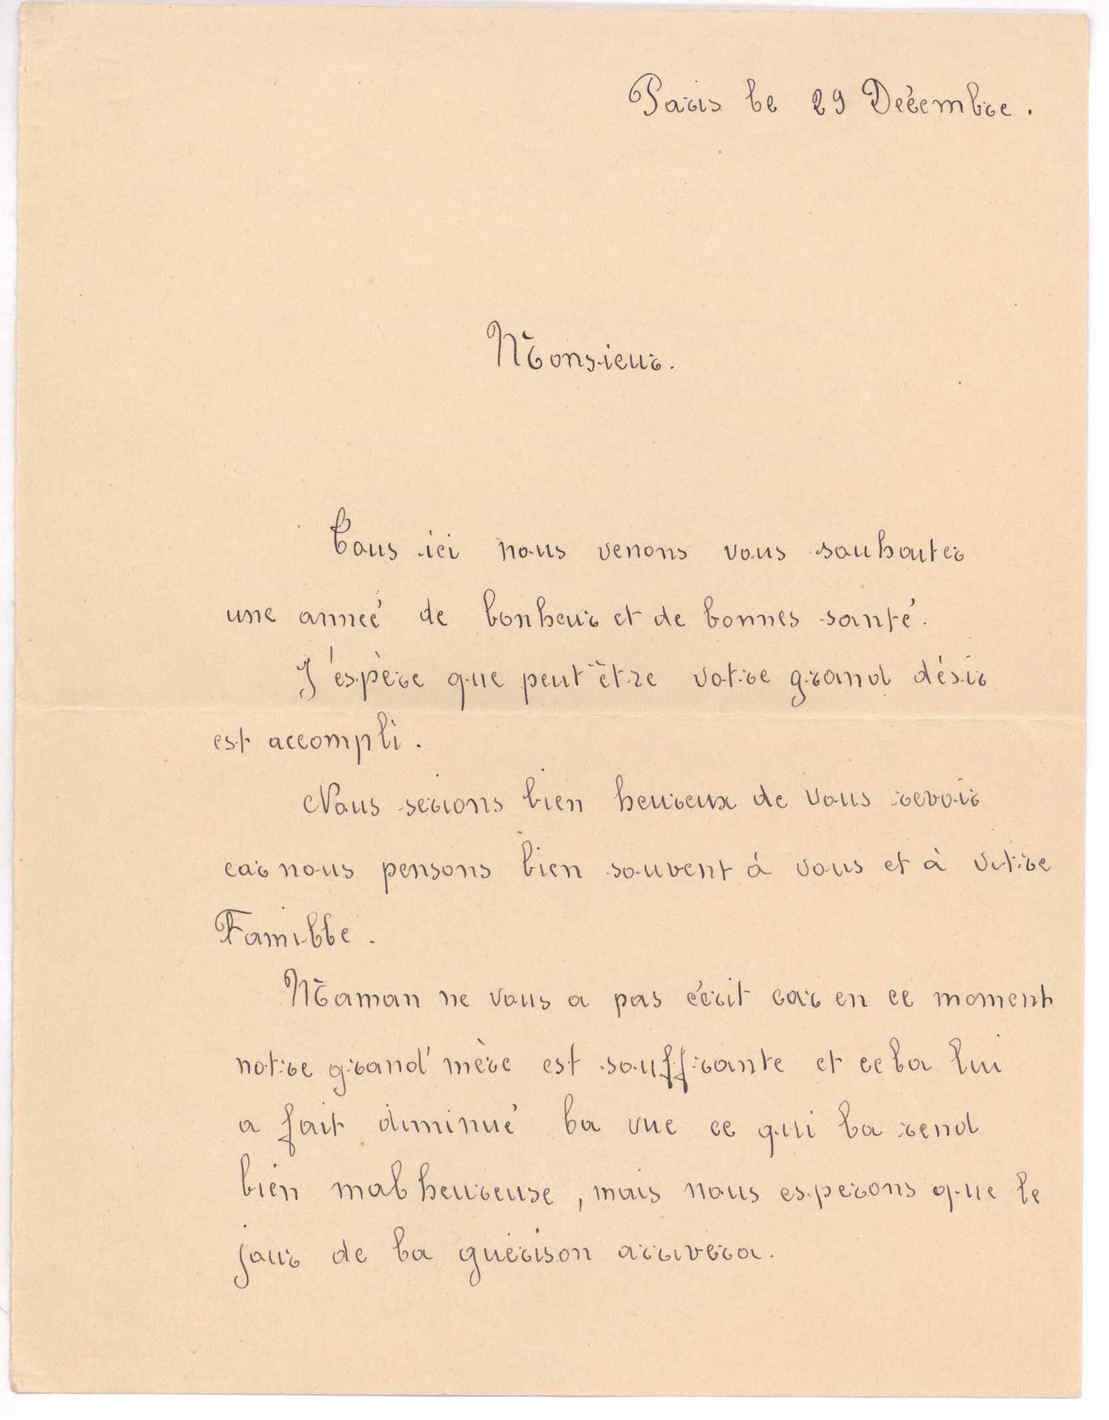 Paris le 29 Décembre.
Monsieur.
Tous ici nous venons vous souhaiter
une anneé de bonheur et de bonnes santé.
J'éspère que peut être votre grand désir
est accompli.
Nous serions bien heureux de vous revoir
car nous pensons bien souvent à vous et à votre
Famille.
Maman ne vous a pas écrit car en ce moment
notre grand'mère est souffrante et cela lui
a fait diminué la vue ce qui la rend
bien malheureuse, mais nous esperons que le
jour de la guérison arrivera.